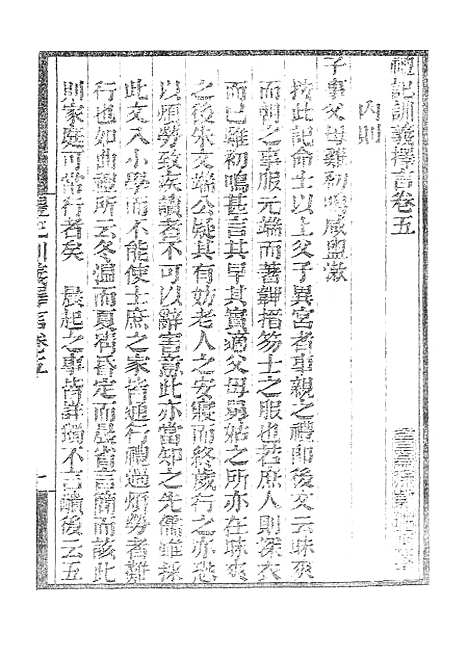 禮記訓義擇言卷五
內則
子事父母雞初鳴咸盥漱
按此記命士以上父子異宮者事親之禮即後文云昧爽
而朝之事服元端而著韠搢笏士之服也若庶人則深衣
而已雞初鳴甚言其早其實適父母舅姑之所亦在昧爽
之後朱文端公疑其有妨老人之安寢而終歲行之亦恐
以煩勞致疾讀者不可以辭害意此亦當知之先儒雖採
此文入小學而不能使士庶之家皆遵行禮過煩勞者難
行也如曲禮所云冬溫而夏凊昏定而晨省言簡而該此
則家庭可當行者矣 晨起之事皆詳獨不言靧後云五
禮記訓義擇言卷五 一